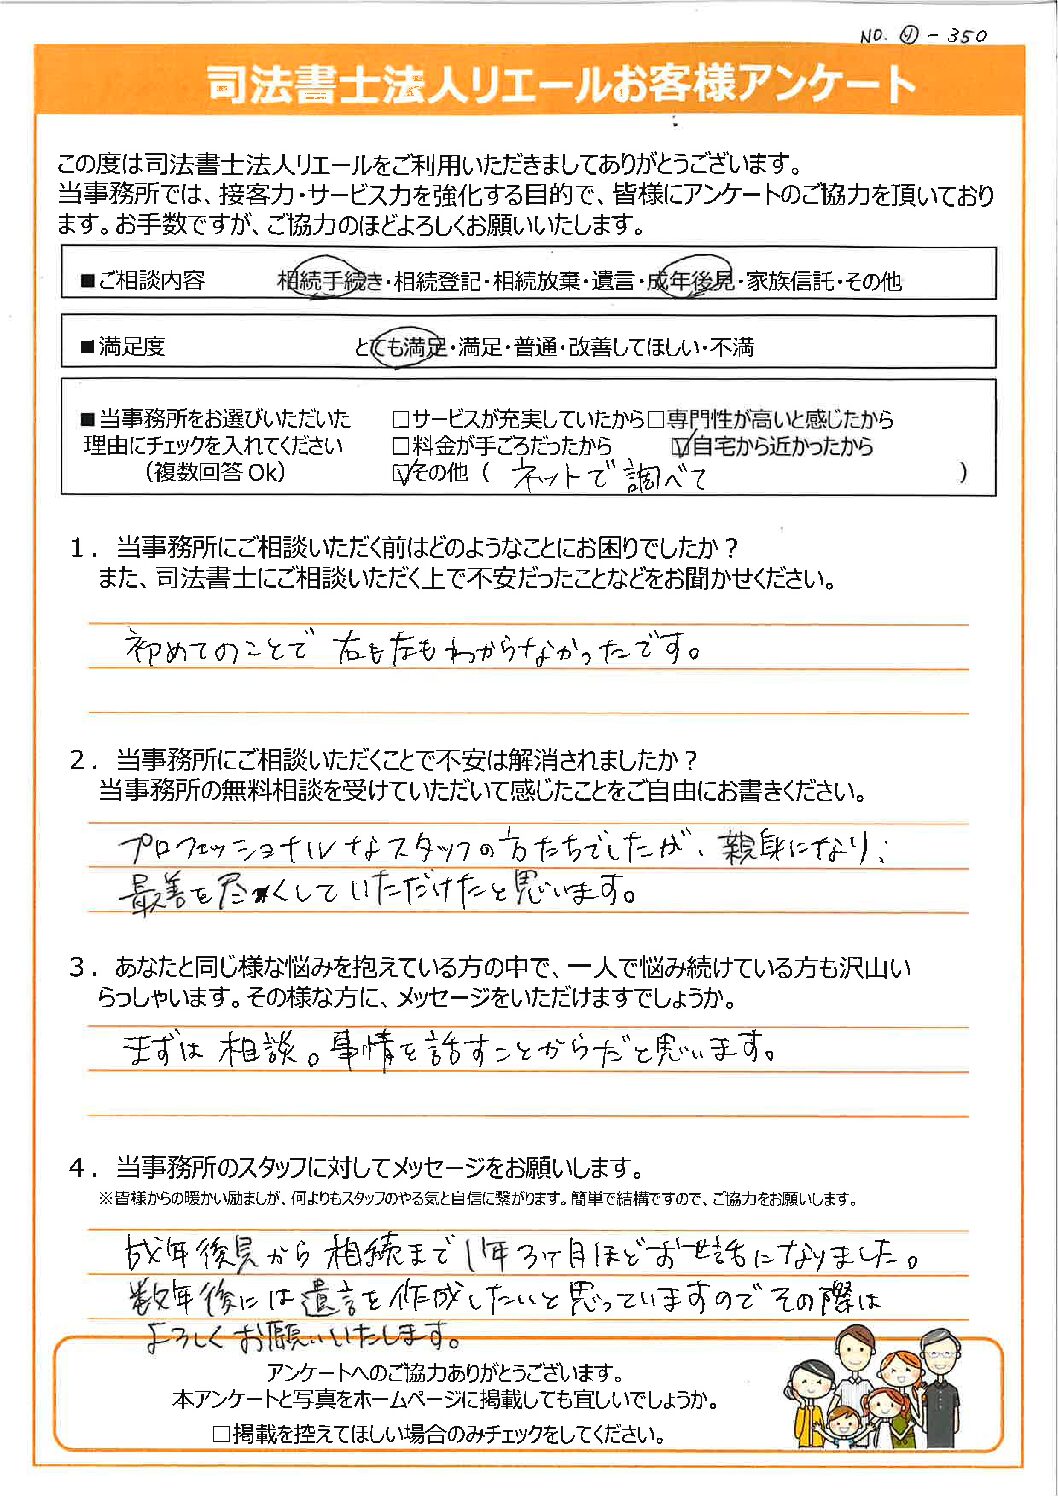 NO. ㋷-350
司法書士法人リエールお客様アンケート
この度は司法書士法人リエールをご利用いただきましてありがとうございます。
当事務所では、接客力・サービス力を強化する目的で、皆様にアンケートのご協力を頂いており
ます。お手数ですが、ご協力のほどよろしくお願いいたします。
■ご相談内容 相続手続き・相続登記・相続放棄・遺言・成年後見・家族信託・その他
■満足度 とても満足・満足・普通・改善してほしい・不満
■当事務所をお選びいただいた □サービスが充実していたから□専門性が高いと感じたから
理由にチェックを入れてください □料金が手ごろだったから ☑自宅から近かったから
（複数回答OK） ☑その他（ ネットで調べて ）
１．当事務所にご相談いただく前はどのようなことにお困りでしたか？
また、司法書士にご相談いただく上で不安だったことなどをお聞かせください。
初めてのことで右も左もわからなかったです。
２．当事務所にご相談いただくことで不安は解消されましたか？
当事務所の無料相談を受けていただいて感じたことをご自由にお書きください。
プロフェッショナルなスタッフの方たちでしたが、親身になり、
最善を尽くしていただけたと思います。
３．あなたと同じ様な悩みを抱えている方の中で、一人で悩み続けている方も沢山い
らっしゃいます。その様な方に、メッセージをいただけますでしょうか。
まずは相談。事情を話すことからだと思います。
４．当事務所のスタッフに対してメッセージをお願いします。
※皆様からの暖かい励ましが、何よりもスタッフのやる気と自信に繋がります。簡単で結構ですので、ご協力をお願いします。
成年後見から相続まで1年3ヶ月ほどお世話になりました。
数年後には遺言を作成したいと思っていますのでその際は
よろしくお願いいたします。
アンケートへのご協力ありがとうございます。
本アンケートと写真をホームページに掲載しても宜しいでしょうか。
□掲載を控えてほしい場合のみチェックをしてください。